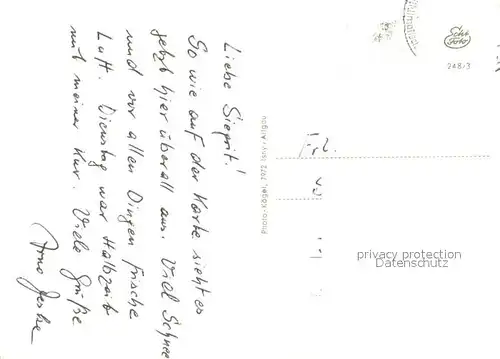 Liebe Siegrit!
So wie auf der Karte sieht es
jetzt hier überall aus. Viel Schnee
und vor allen Dingen frische
Luft. Dienstag war Halbzeit
mit meiner Kur. Viele Grüße
Photo-Kögel, 7972 Isny · Allgäu
Echt
Foto
248/3
Frl.
privacy protection
Datenschutz